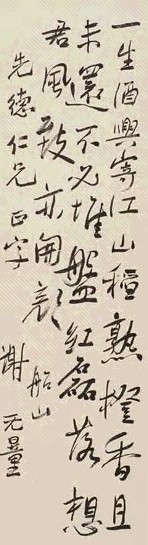 一生酒興寄江山稻熟橙香且
未還不必堆盤紅磊落想
君風致亦開顏 船山
先德仁兄正字
謝无量